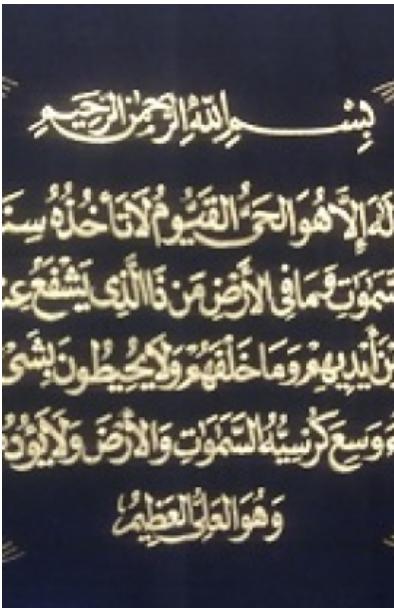 بِسْمِ اللَّهِ الرَّحْمَٰنِ الرَّحِيمِ
لَهَ إِلَّا هُوَ الْحَيُّ الْقَيُّومُ لَا تَأْخُذُهُ سِنَ
سَّمَٰوَٰتِ وَمَا فِي الْأَرْضِ مَنْ ذَا الَّذِي يَشْفَعُ عِنـ
يْنَ أَيْدِيهِمْ وَمَا خَلْفَهُمْ وَلَا يُحِيطُونَ بِشَيْ
ءَ وَسِعَ كُرْسِيُّهُ السَّمَٰوَٰتِ وَالْأَرْضَ وَلَا يَؤُدُ
وَهُوَ الْعَلِيُّ الْعَظِيمُ